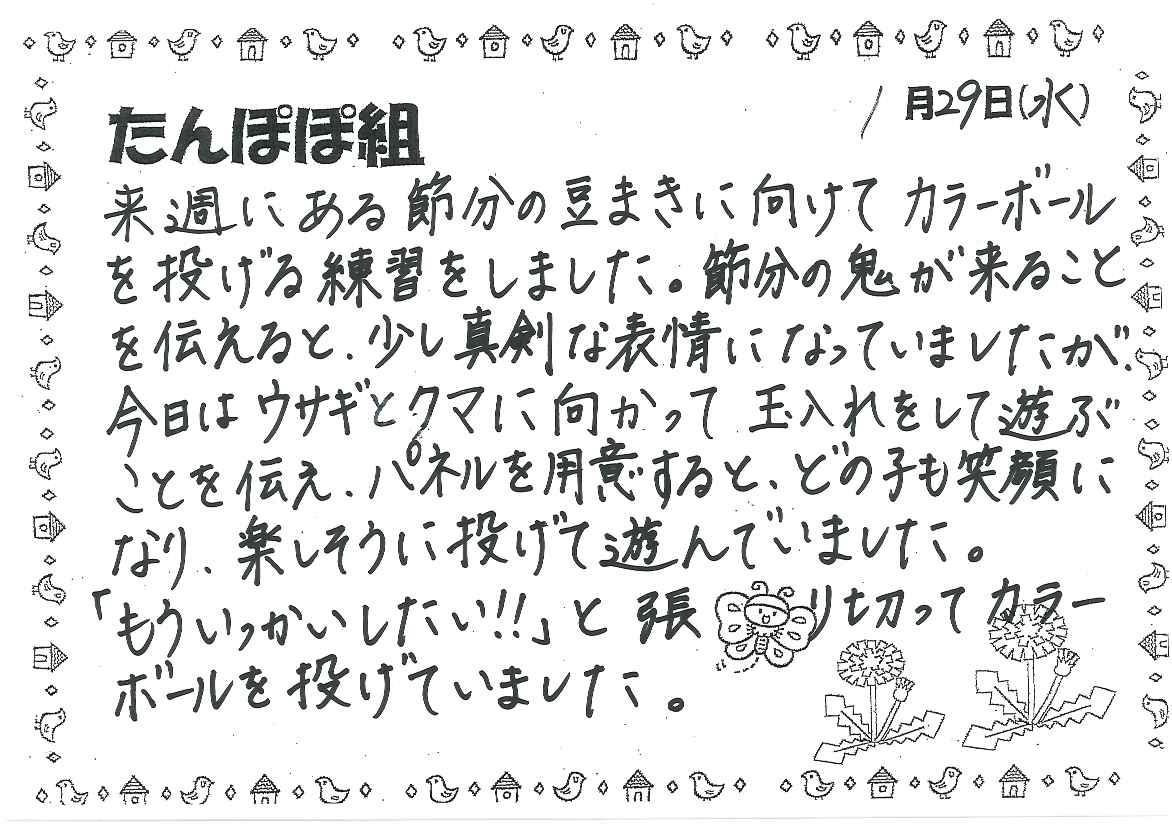 たんぽぽ組
1月29日(水)
来週にある節分の豆まきに向けてカラーボール
を投げる練習をしました。節分の鬼が来ること
を伝えると、少し真剣な表情になっていましたが、
今日はウサギとクマに向かって玉入れをして遊ぶ
ことを伝え、パネルを用意すると、どの子も笑顔に
なり、楽しそうに投げて遊んでいました。
「もういっかいしたい!!」と張り切ってカラー
ボールを投げていました。